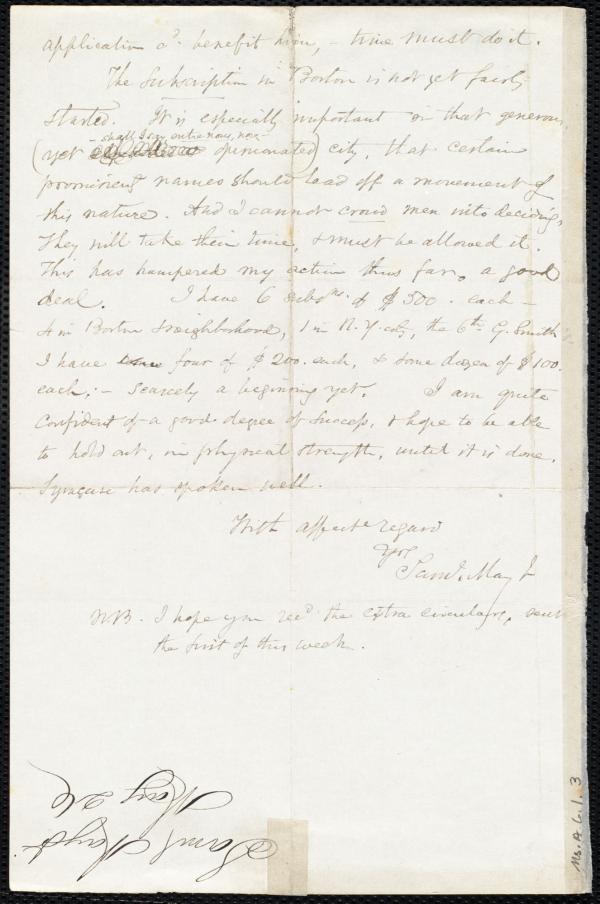 application cd. benefit him, – time must do it.
The Subscription in Boston is not yet fairly
started. It is especially important in that generous,
– shall I say, entre nous, non-
(yet opinionated) city, that certain
prominent names should lead off a movement of
this nature. And I cannot crowd men into deciding,
They will take their time, & must be allowed it.
This has hampered my action thus far, a good
deal. I have 6 subsns. of $500. each –
4 in Boston & neighborhood, 1 in N.Y. city, the 6th G. Smith's.
I have four of $200. each, & some dozen of $100.
each; – scarcely a beginning yet. I am quite
confident of a good degree of success, & hope to be able
to hold out, in physical strength, until it is done.
Syracuse has spoken well.
With affecte regard
Yrs
Saml. May Jr
N.B. I hope you recd the extra circulars, sent
the first of this week.
Saml May Jr
May 26
Ms. A. 6. 1. 3